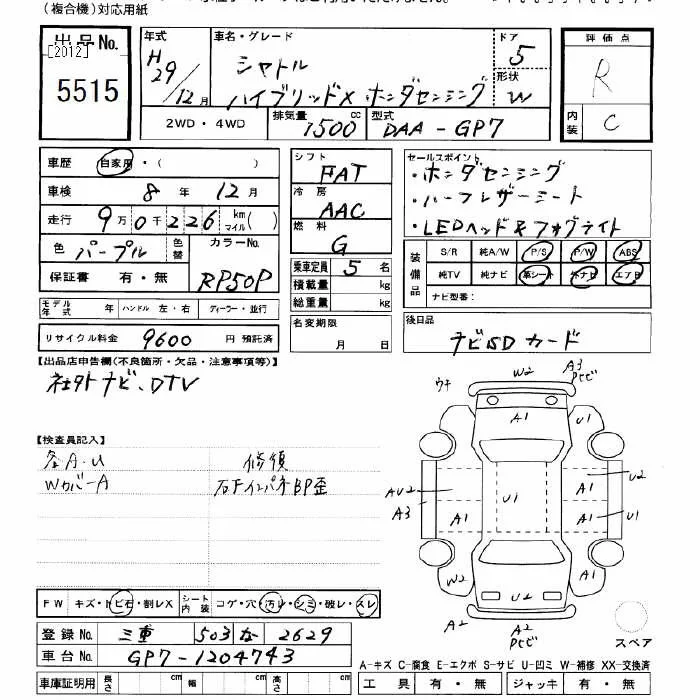 (複合機)対応用紙
出品No.
[2012]
5515
年式
H29/12月
車名・グレード
シャトル
ハイブリッドX ホンダセンシング
ドア
5
形状
W
評価点
R
内装
C
2WD・4WD
排気量
1500 cc
型式
DAA-GP7
車歴 自家用・( )
車検 8年 12月
走行 9万0千226 km マイル( )
色 パープル 色替
カラーNo.
RP50P
保証書 有・無
モデル年式 年 ハンドル 左・右 ディーラー・並行
リサイクル料金 9600 円 預託済
シフト
FAT
冷房
AAC
燃料
G
乗車定員 5 名
積載量 kg
総重量 kg
名変期限
月 日
セールスポイント
・ホンダセンシング
・ハーフレザーシート
・LEDヘッド&フォグライト
装備品
S/R 純A/W P/S P/W ABS
純TV 純ナビ 革シート 外ナビ エアB
ナビ型番:
後日品
ナビSDカード
【出品店申告欄(不良箇所・欠品・注意事項等)】
社外ナビ、DTV
【検査員記入】
各A・U 修復
Wカバ-A 右Fインパネ BP歪
ウチ W2 A3 Pセビ
A1 A1 U1
AU2 A3 A1 U1 A1 U2
A1 U1
W2 A1
A2 A2 Pセビ
スペア
FW キズ・トビ石・割レX シート内装 コゲ・穴・汚レ・シミ・破レ・スレ
登録No. 三重 503 な 2629
車台No. GP7-1204743
車庫証明用 長さ cm 幅 cm 高さ cm
A-キズ C-腐食 E-エクボ S-サビ U-凹ミ W-補修 XX-交換済
工具 有・無 ジャッキ 有・無